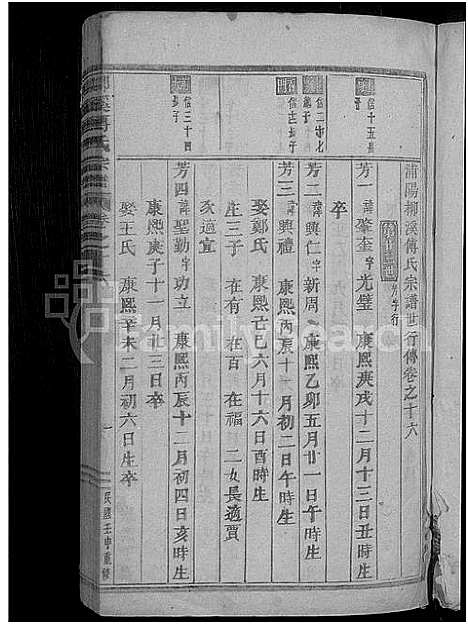 浦陽柳溪傅氏宗譜世行傳卷之十六
芳字行
信十五長子
芳一 諱肇奎 字光璧 康熙庚戌十二月十三日丑時生
卒
信二十七
芳二 諱興仁 字新周 康熙乙卯五月廿一日午時生
芳三 諱興禮 康熙丙辰十一月初二日午時生
娶鄭氏 康熙己巳六月十六日酉時生
生三子 在有 在百 在福 二女長適賈
次適宣
信三十四長子
芳四 諱聖勤 字功立 康熙丙辰十二月初四日亥時生
康熙庚子十一月廿三日卒
娶王氏 康熙辛未二月初六日生卒
一
民國壬申重修
familysearch